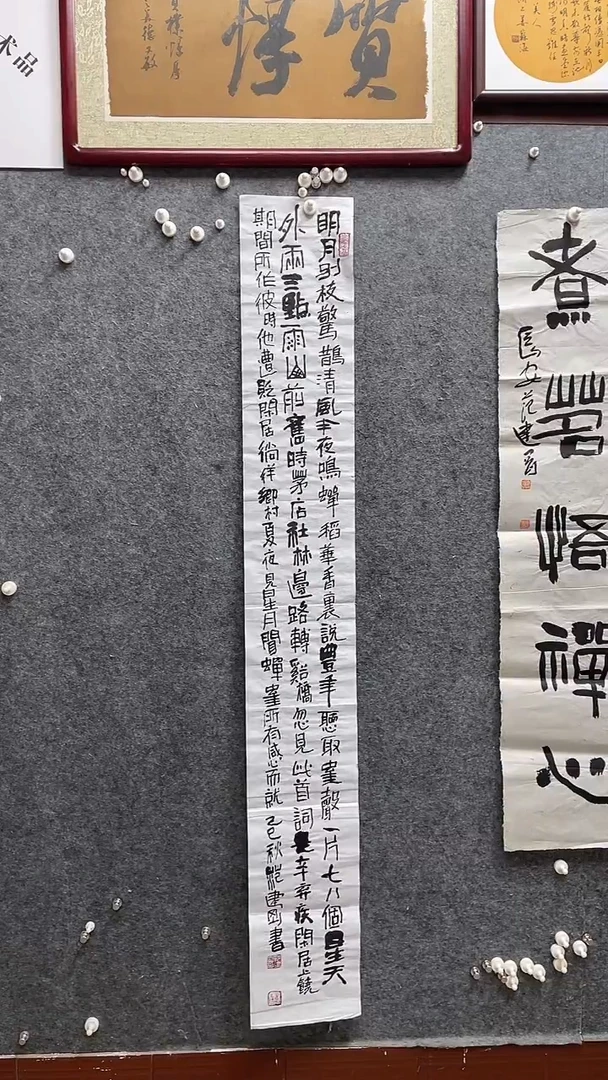 术品
明月別枝驚鵲清風半夜鳴蟬稻華香裏說豐年聽取蛙聲一片七八個星天
外兩三點雨山前舊時茅店社林邊路轉谿橋忽見此首詞是辛弃疾閑居上饒
期間所作彼時他遭貶閑居徜徉鄉村夏夜見星月聞蟬蛙所有感而就乙巳秋范建書
煮茗悟禪心
長安范建
質